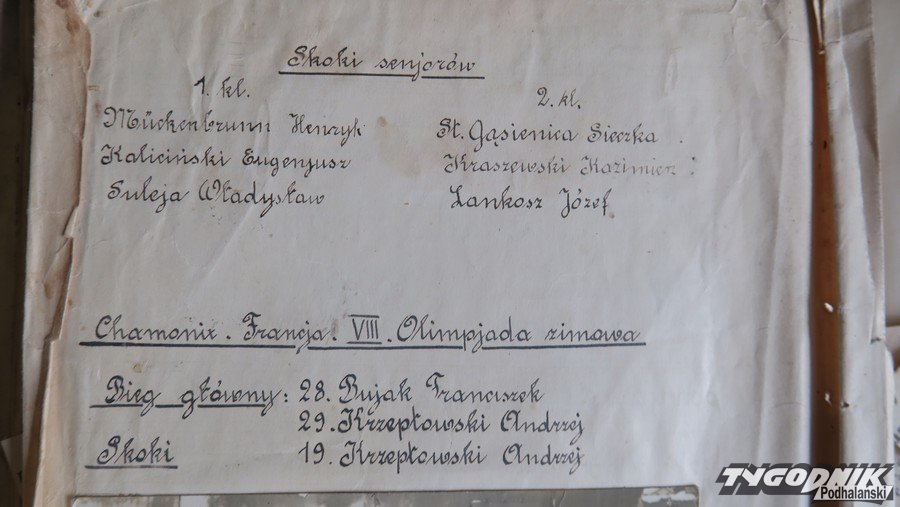 Skoki senjorów
1. kl.
Mückenbrunn Henryk
Kaliciński Eugenjusz
Suleja Władysław
2. kl.
St. Gąsienica Sieczka
Kraszewski Kazimierz
Lankosz Józef
Chamonix. Francja. VIII. Olimpjada zimowa
Bieg główny: 28. Bujak Franciszek
29. Krzeptowski Andrzej
Skoki 19. Krzeptowski Andrzej
TYGODNIK
Podhalański